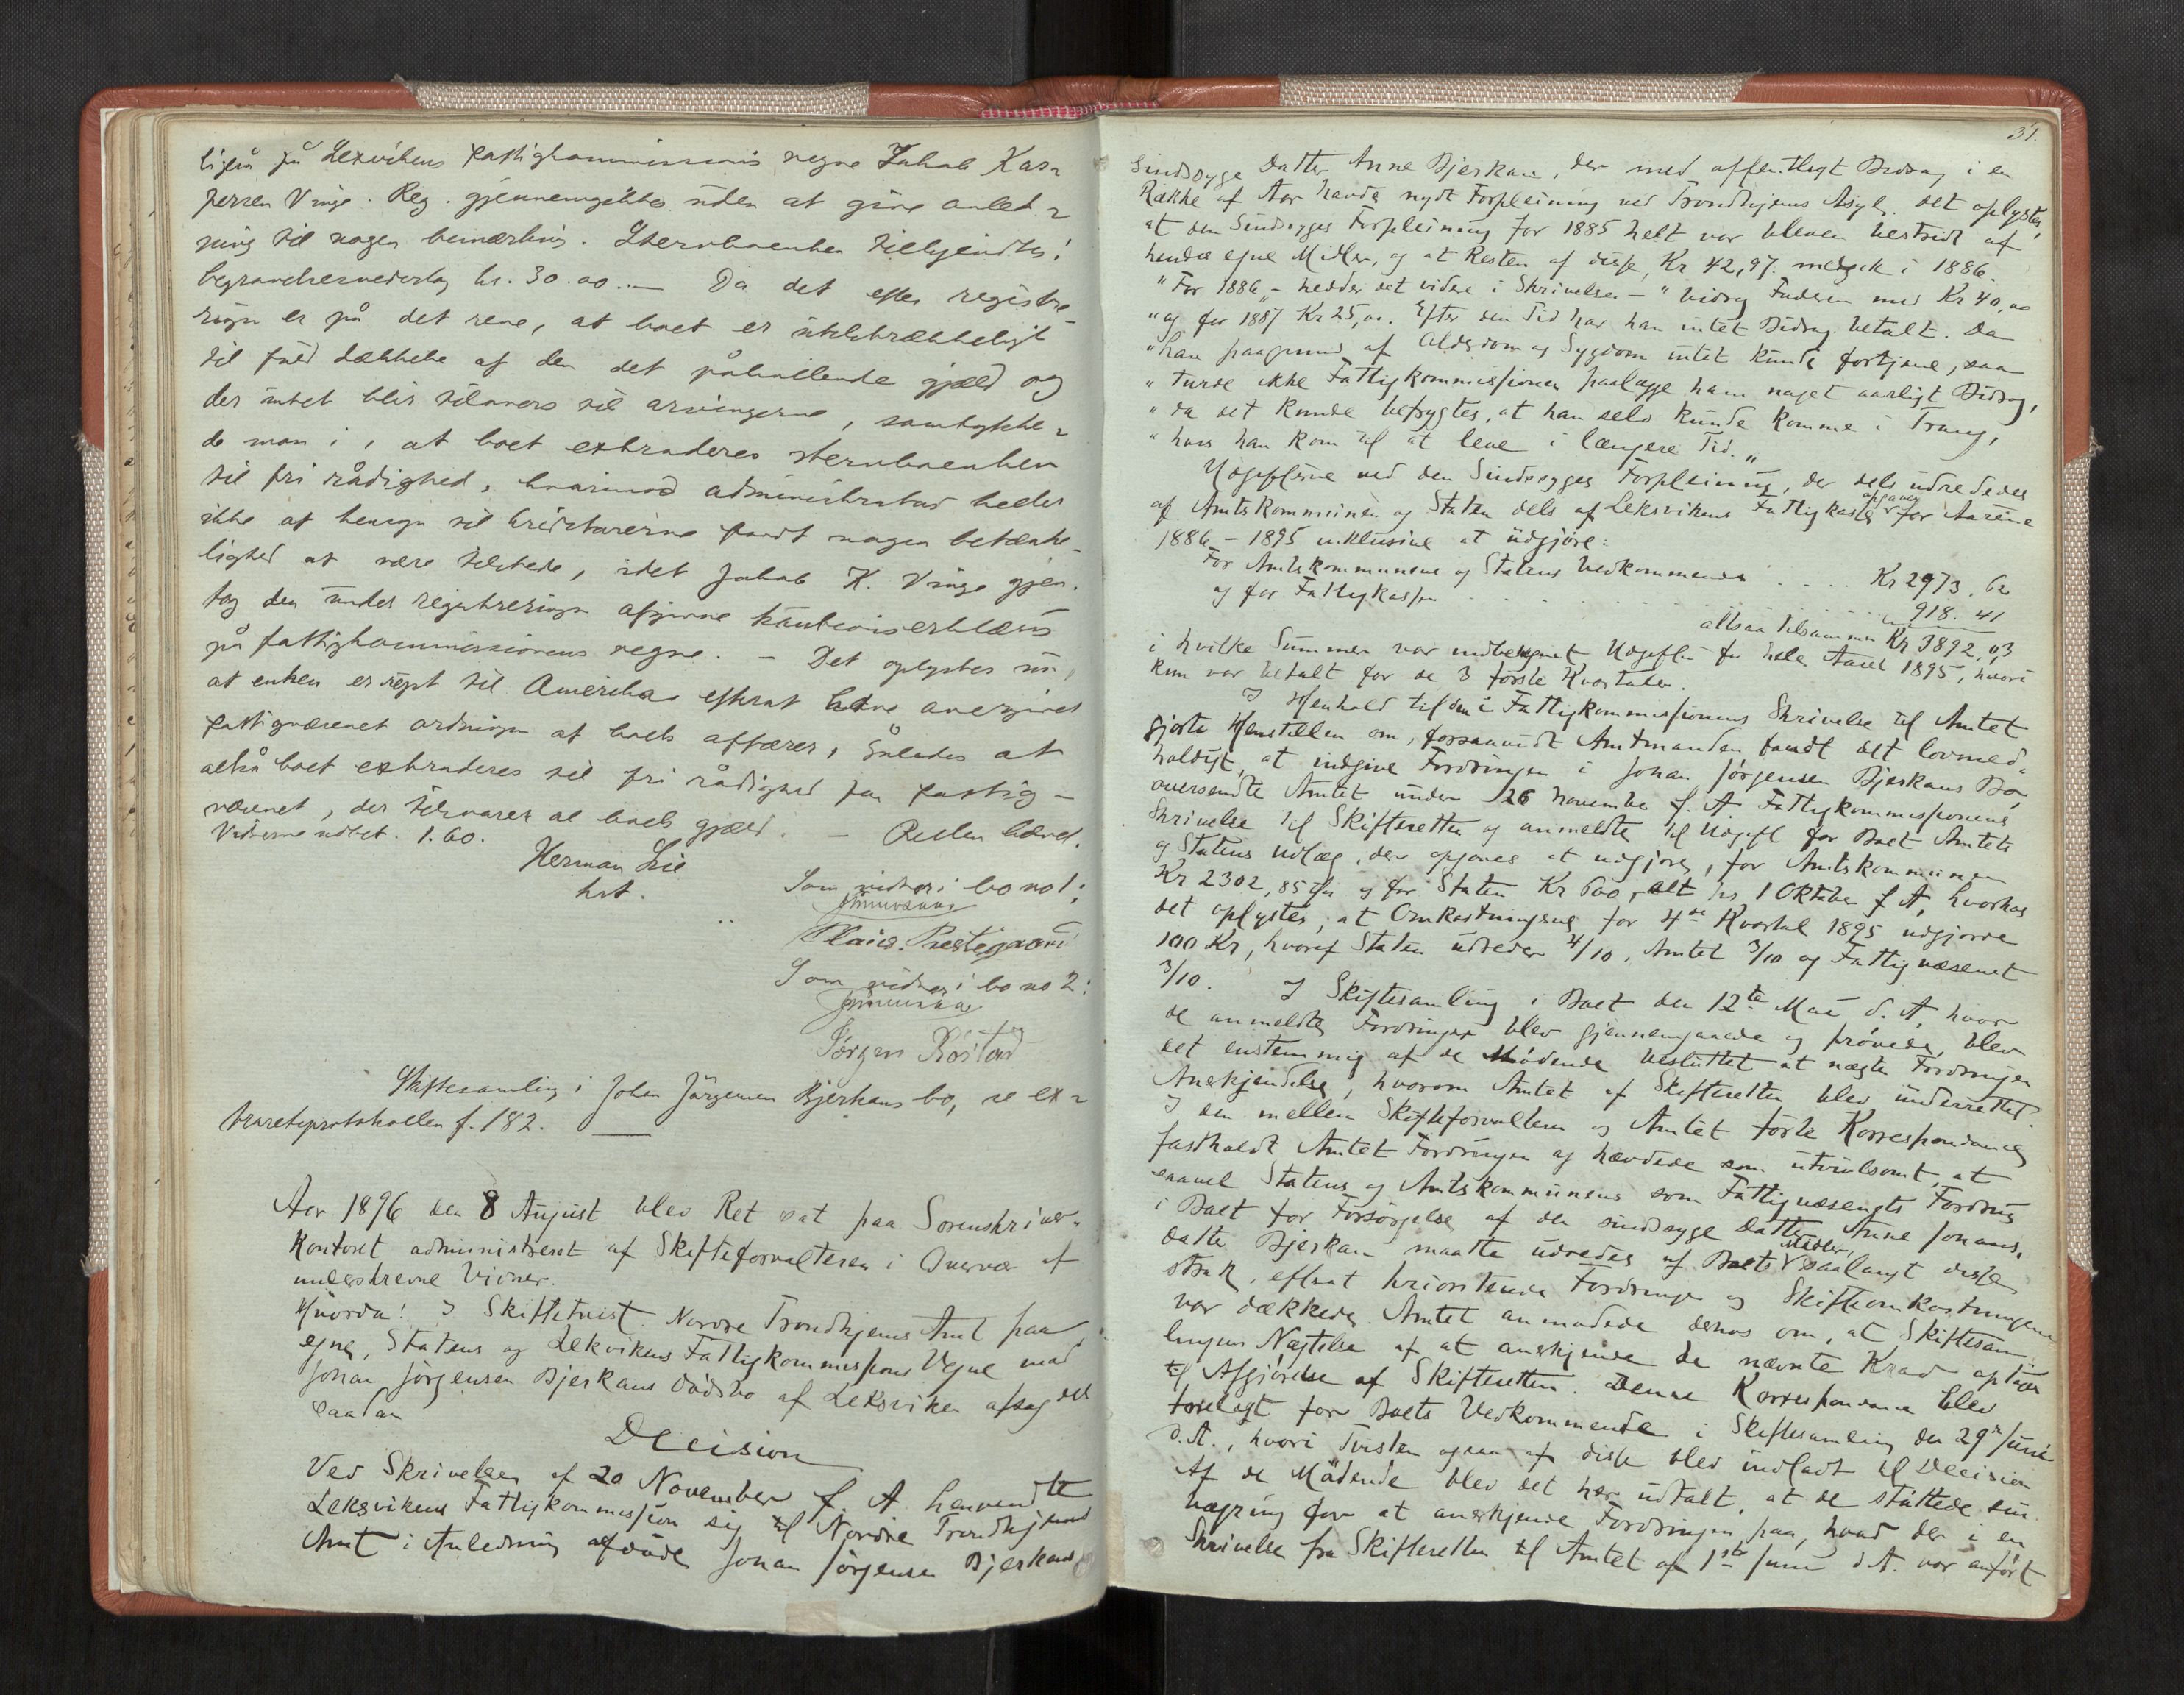 ligeså på Lexvikens fattigkommissions vegne Jakob Kas-
persen Vinge. Reg. gjennemgikkes uden at give anled-
ning til nogen bemærkning. Stervboenken tilkjendtes i
begravelsesvederlag kr. 30.00. — Da det efter registre-
ringen er på det rene, at boet er utilstrækkeligt
til fuld dækkelse af den det påhvilende gjæld og
der intet blir tilovers til arvingerne, samtykke-
de man i, at boet extraderes stervboenken
til fri rådighed, hvorimod administrator heller
ikke af hensyn til kreditorerne fandt nogen betænke-
lighed at være tilstede, idet Jakob K. Vinge gjen-
tog den under registreringen afgivne kautionserklæring
på fattigkommissionens vegne. — Det oplystes nu,
at enken er rejst til Amerika efterat have overgivet
fattigvæsenet ordningen af boets affærer, således at
altså boet extraderes til fri rådighed for fattig-
væsenet, der tilsvarer al boets gjæld. — Retten hævet.
Vidnerne udbet. 1.60.
Herman Lie
kst.
Som vidner i bo no 1:
Claus Prestegaard
Som vidner i bo no 2:
Jørgen Røstad
Skiftesamling i Johan Jørgensen Bjerkans bo, se ex-
traretsprotokollen f. 182. —
Aar 1896 den 8 August blev Ret sat paa Sorenskriver-
kontoret administreret af Skifteforvalteren i Overvær af
underskrevne Vidner.
Hvorda! I Skiftetvist Nordre Trondhjems Amt paa
egne, Statens og Leksvikens Fattigkommissions Vegne mod
Johan Jørgensen Bjerkans Dødsbo af Leksviken afsagdes
saadan
Decision
Ved Skrivelse af 20 November f. A. henvendte
Leksvikens Fattigkommission sig til Nordre Trondhjems
Amt i Anledning afdøde Johan Jørgensen Bjerkans
31.
sindssyge Datter Anne Bjerkan, der med offentligt Bidrag i en
Række af Aar havde nydt Forpleining ved Trondhjems Asyl. Det oplystes,
at den Sindssyges Forpleining for 1885 helt var bleven bestridt af
hendes egne Midler, og at Resten af disse, Kr 42,97. medgik i 1886.
"For 1886" – hedder det videre i Skrivelsen – "bidrog Faderen med Kr 40,00
"og for 1887 Kr 25,00. Efter den Tid har han intet Bidrag betalt. Da
"han paagrund af Alderdom og Sygdom intet kunde fortjene, saa
"turde ikke Fattigkommissionen paalægge ham noget aarligt Bidrag,
"da det kunde befrygtes, at han selv kunde komme i Trang,
"hvis han kom til at leve i længere Tid."
Udgifterne ved den Sindssyges Forpleining, der dels udrededes
af Amtskommunen og Staten dels af Leksvikens Fattigkasse opgaves for Aarene
1886 – 1895 inklusive at udgjøre:
For Amtskommunens og Statens Vedkommende . . . . Kr 2973. 62
og for Fattigkassen . . . . . . . . . . . . 918. 41
altsaa tilsammen Kr 3892,03
i hvilke Summer var medberegnet Udgifter for hele Aaret 1895, hvori
kun var betalt for de 3 første Kvartaler.
I Henhold til den i Fattigkommissionens Skrivelse til Amtet
gjorte Henstillen om, forsaavidt Amtmanden fandt det lovmed-
holdigt, at indgive Fordringen i Johan Jørgensen Bjerkans Bo,
oversendte Amtet under 26 November f. A. Fattigkommissionens
Skrivelse til Skifteretten og anmeldte til Udgift for Boet Amtets
og Statens Udlæg, der opgaves at udgjøre, for Amtskommunen
Kr 2302,85 og for Staten Kr 600, alt pr. 1 Oktober f. A, hvorhos
det oplystes, at Omkostningerne for 4de Kvartal 1895 udgjorde
100 Kr, hvoraf Staten udreder 4/10, Amtet 3/10 og Fattigvæsenet
3/10. I Skiftesamling i Boet den 12te Mai d. A, hvor
de anmeldte Fordringer blev gjennemgaaede og prøvede, blev
det enstemmig af de Mødende besluttet at nægte Fordringen
Anerkjendelse, hvorom Amtet af Skifteretten blev underrettet.
I den mellem Skifteforvalteren og Amtet førte Korrespondance
fastholdt Amtet Fordringen og hævdede som utvivlsomt, at
saavel Statens og Amtskommunens som Fattigvæsenets Fordring
i Boet for Forsørgelse af den sindssyge Datter Anne Johans-
datter Bjerkan maatte udredes af Boets Midler, saalangt disse
strak, efterat prioriterede Fordringer og Skifteomkostningerne
var dækkede. Amtet anmodede derhos om, at Skiftesam-
lingens Nægtelse af at anerkjende de nævnte Krav optages
til Afgjørelse af Skifteretten. Denne Korrespondance blev
forelagt for Boets Vedkommende i Skiftesamling den 29de Juni
d. A., hvori Tvisten ogsaa af disse blev indladt til Decision.
Af de Mødende blev det her udtalt, at de støttede sin
Vægring for at anerkjende Fordringen paa, hvad der i en
Skrivelse fra Skifteretten til Amtet af 1ste Juni d. A. var anført